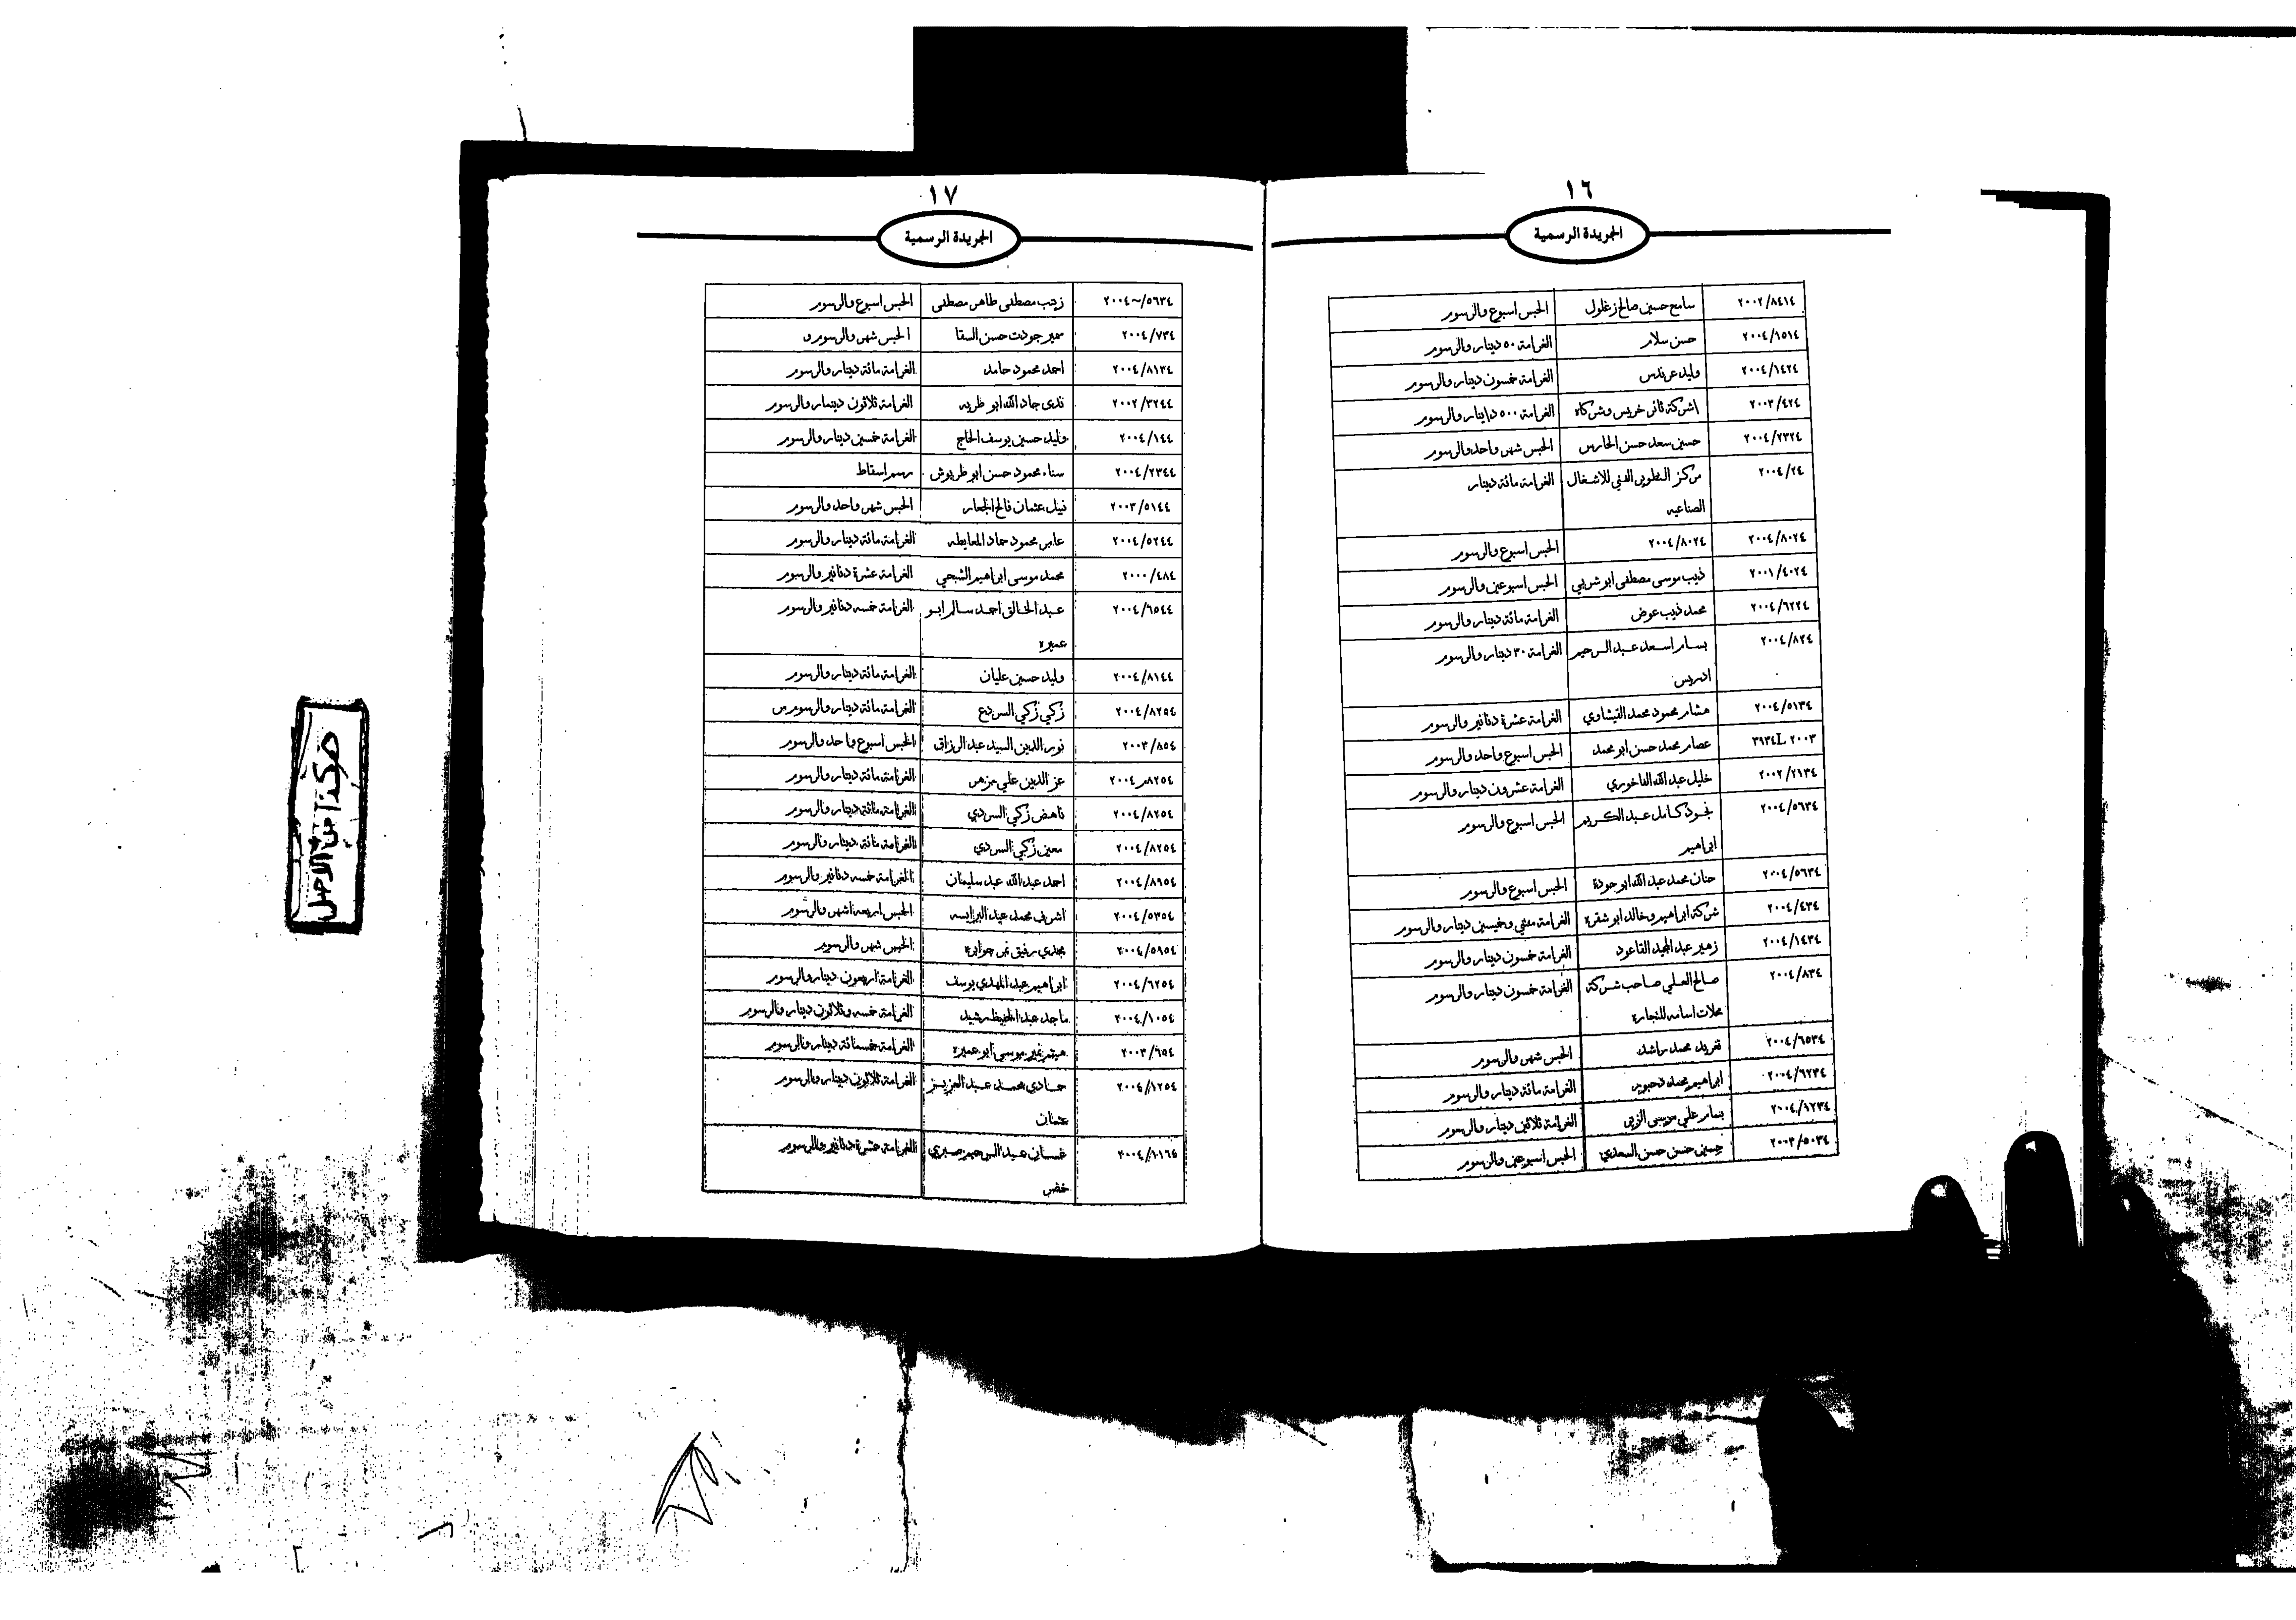 ١٦
الجريدة الرسمية
٢٠٠٢/٨٤١٤ سامح حسين صالح زغلول الحبس اسبوع والرسوم
٢٠٠٤/١٥١٤ حسن سلام الغرامة ٥٠ دينار والرسوم
٢٠٠٤/١٤٢٤ وليد عرندس الغرامة خمسون دينار والرسوم
٢٠٠٣/٤٢٤ اشركة ثائر خريس وشركاه الغرامة ٥٠٠ داينار والرسوم
٢٠٠٤/٢٣٢٤ حسين سعد حسن الحارس الحبس شهر واحد والرسوم
٢٠٠٤/٢٤ مركز التطوير الفني للاشغال الغرامة مائة دينار
الصناعيه
٢٠٠٤/٨٠٢٤ ٢٠٠٤/٨٠٢٤ الحبس اسبوع والرسوم
٢٠٠١/٤٠٢٤ ذيب موسى مصطفى ابو شربي الحبس اسبوعين والرسوم
٢٠٠٤/٦٢٢٤ محمد ذيب عوض الغرامة مائة دينار والرسوم
٢٠٠٤/٨٢٤ بسام اسعد عبد الرحيم الغرامة ٣٠ دينار والرسوم
ادريس
٢٠٠٤/٥١٣٤ هشام محمود محمد القيشاوي الغرامة عشرة دنانير والرسوم
٢٠٠٣ L٣٩٣٤ عصام محمد حسن ابو محمد الحبس اسبوع واحد والرسوم
٢٠٠٢/٢١٣٤ خليل عبد الله الفاخوري الغرامة عشرون دينار والرسوم
٢٠٠٤/٥٦٣٤ نجود كامل عبد الكريم الحبس اسبوع والرسوم
ابراهيم
٢٠٠٤/٥٦٣٤ حنان محمد عبد الله ابو جودة الحبس اسبوع والرسوم
٢٠٠٤/٤٣٤ شركة ابراهيم وخالد ابو شقره الغرامة مئتي وخميسين دينار والرسوم
٢٠٠٤/١٤٣٤ زهير عبد المجيد القاعود الغرامة خمسون دينار والرسوم
٢٠٠٤/٨٣٤ صالح العلي صاحب شركة الغرامة خمسون دينار والرسوم
محلات اسامه للتجاره
٢٠٠٤/٦٥٣٤ تغريد محمد راشد الحبس شهر والرسوم
٢٠٠٤/٦٢٣٤ ابراهيم محمد دحبور الغرامة مائة دينار والرسوم
٢٠٠٤/١٢٣٤ بسام علي موسى الزبن الغرامة ثلاثين دينار والرسوم
٢٠٠٣/٥٠٣٤ حسين حسن حسن السعدي الحبس اسبوعين والرسوم
١٧
الجريدة الرسمية
٢٠٠٤~/٥٦٣٤ زينب مصطفى طاهر مصطفى الحبس اسبوع والرسوم
٢٠٠٤/٧٣٤ سمير جودت حسن السقا الحبس شهر والرسوم و
٢٠٠٤/٨١٣٤ احمد محمود حامد الغرامة مائة دينار والرسوم
٢٠٠٢/٣٢٤٤ ندى جاد الله ابو ظريه الغرامة ثلاثون دينمار والرسوم
٢٠٠٤/١٤٤ وليد حسين يوسف الحاج الغرامة خمسين دينار والرسوم
٢٠٠٤/٢٣٤٤ سناء محمود حسن ابو طربوش رسم اسقاط
٢٠٠٣/٥١٤٤ نبيل عثمان فالح الجعار الحبس شهر واحد والرسوم
٢٠٠٤/٥٢٤٤ عامر محمود حماد المعايطه الغرامة مائة دينار والرسوم
٢٠٠٠/٤٨٤ محمد موسى ابراهيم الشبحي الغرامة عشرة دنانير والرسوم
٢٠٠٤/٦٥٤٤ عبد الخالق احمد سالم ابو الغرامة خمسه دنانير والرسوم
عميره
٢٠٠٤/٨١٤٤ وليد حسين عليان الغرامة مائة دينار والرسوم
٢٠٠٤/٨٢٥٤ زكي زكي السردع الغرامة مائة دينار والرسوم س
٢٠٠٣/٨٥٤ نور الدين السيد عبد الرزاق الحبس اسبوع واحد والرسوم
٨٢٥٤ر٢٠٠٤ عز الدين علي مزهر الغرامة مائة دينار والرسوم
٢٠٠٤/٨٢٥٤ ناهض زكي السردي الغرامة مائة دينار والرسوم
٢٠٠٤/٨٢٥٤ معين زكي السردي الغرامة مائة دينار والرسوم
٢٠٠٤/٨٩٥٤ احمد عبد الله عبد سليمان الغرامة خمسه دنانير والرسوم
٢٠٠٤/٥٣٥٤ اشرف محمد عيد البرايسه الحبس اربعه اشهر والرسوم
٢٠٠٤/٥٩٥٤ مجدي رفيق نمر جوابره الحبس شهر والرسوم
٢٠٠٤/٦٢٥٤ ابراهيم عبد المهدي يوسف الغرامة اربعون دينار والرسوم
٢٠٠٤/١٠٥٤ ماجد عبد الحفيظ رشيد الغرامة خمسه وثلاثون دينار والرسوم
٢٠٠٣/٦٥٤ هيثم نمير موسى ابو عميره الغرامة خمسمائة دينار والرسوم
٢٠٠٤/١٢٥٤ حمادى محمد عبد العزيز الغرامة ثلاثون دينار والرسوم
عثمان
٢٠٠٤/١١٦٤ غسان عبد الرحيم صبري الغرامة عشرة دنانير والرسوم
خضر
هكذا من الاصل